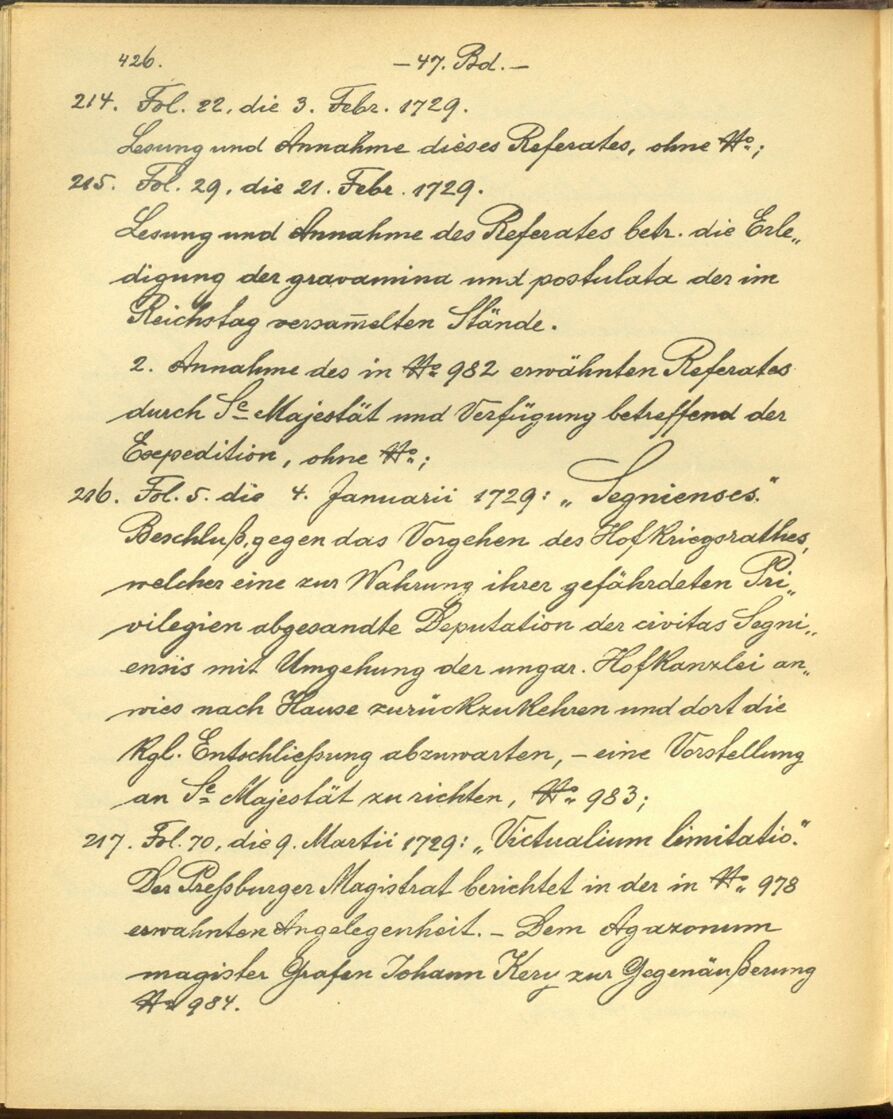 426. — 47. Bd. —
214. Fol. 22, die 3. Febr. 1729.
Lesung und Annahme dieses Referates, ohne No;
215. Fol. 29, die 21. Febr. 1729.
Lesung und Annahme des Referates betr. die Erle„
digung der gravamina und postulata der im
Reichstag versam̅elten Stände.
2. Annahme des in No 982 erwähnten Referates
durch Se Majestät und Verfügung betreffend der
Exepedition, ohne No;
216. Fol. 5. die 4. Januarii 1729: „Segnienses."
Beschluß, gegen das Vorgehen des Hofkriegsrathes,
welcher eine zur Wahrung ihrer gefährdeten Pri„
vilegien abgesandte Deputation der civitas Segni„
ensis mit Umgehung der ungar. Hofkanzlei an„
wies nach Hause zurückzukehren und dort die
kgl. Entschließung abzuwarten, – eine Vorstellung
an Se Majestät zu richten, No 983;
217. Fol. 70, die 9. Martii 1729: „Victualium limitatio."
Der Preßburger Magistrat berichtet in der in No 978
erwahnten Angelegenheit. – Dem Agazonum
magister Grafen Johann Kery zur Gegenäußerung
No 984.